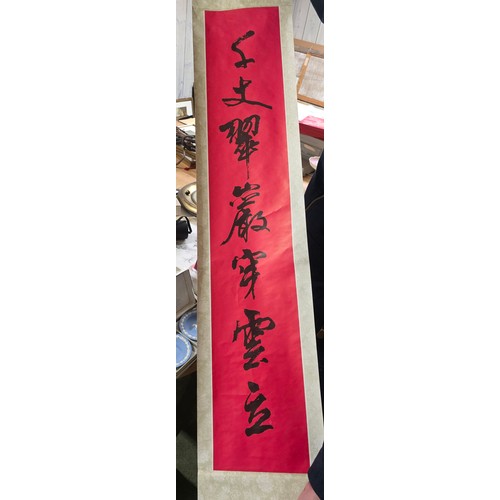 千丈翠巖穿雲立